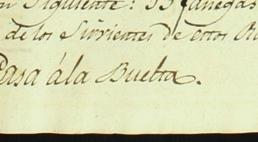 Siguiente: 33 fanegas
de los Sirvientes de estos
Pasa á la Buelta.